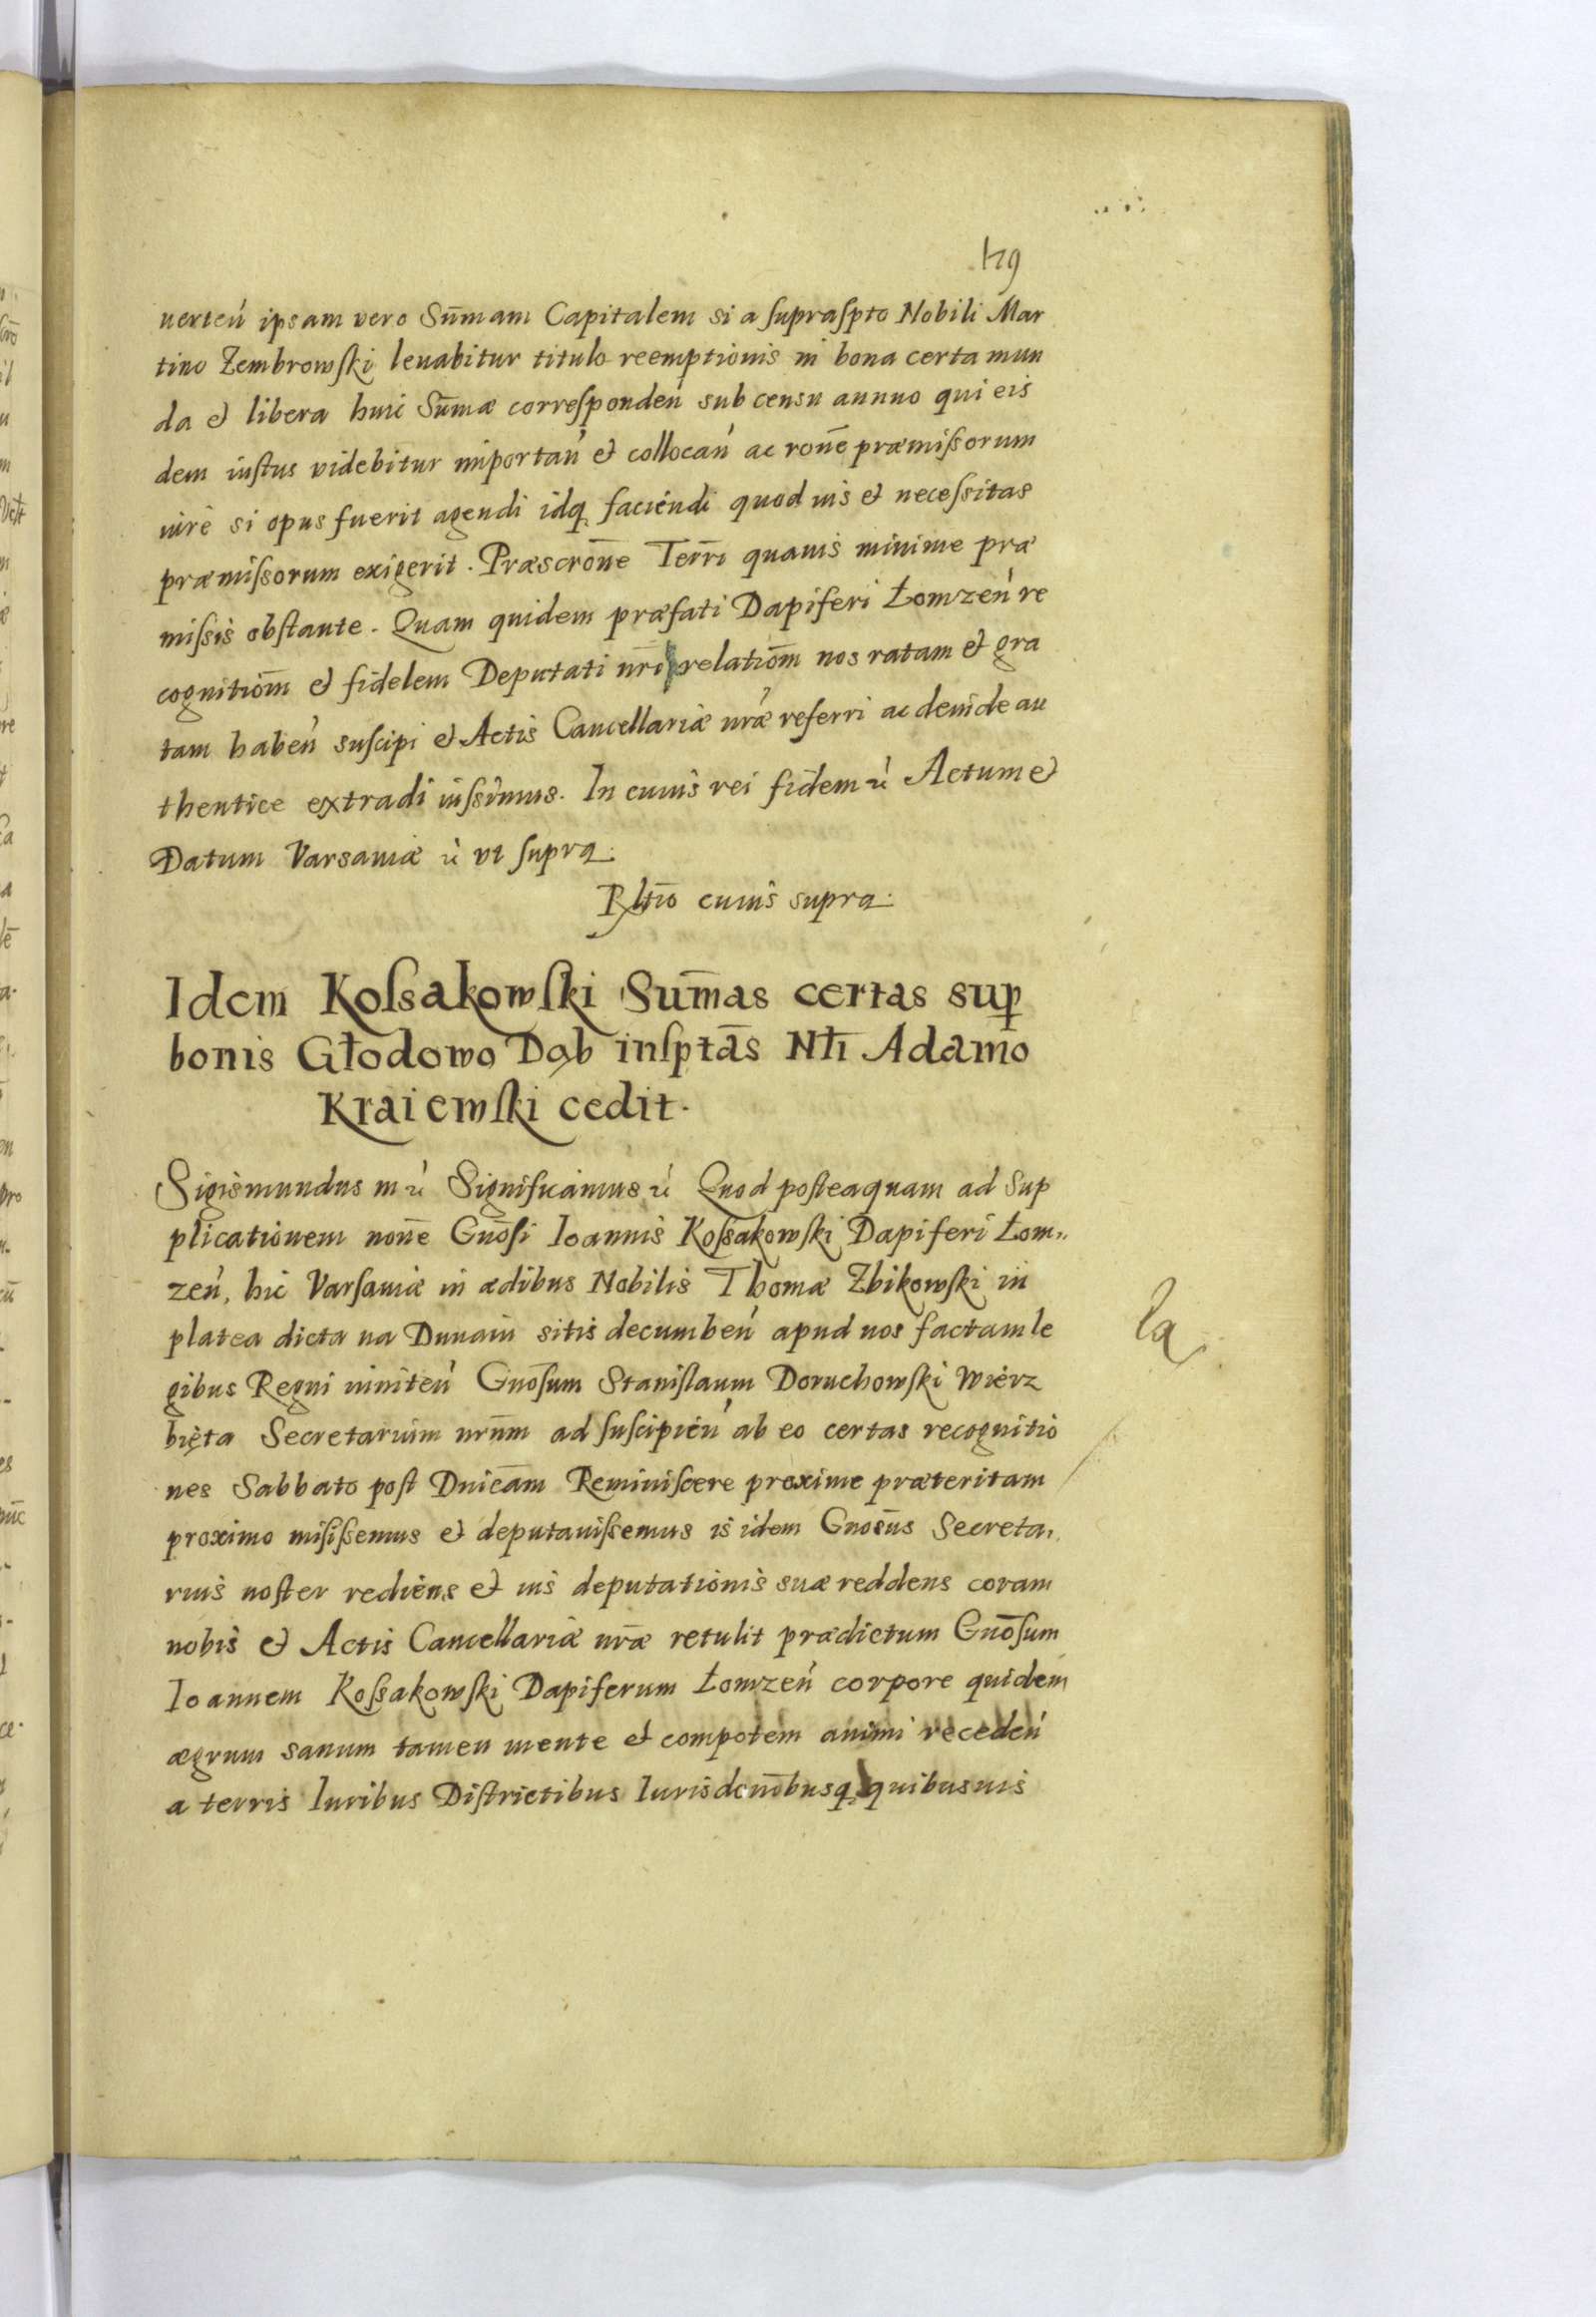 verteń ipsam vero Sum̄am Capitalem si a supraspto Nobili Mar
tino Zembrowski levabitur titulo reemptionis in bona certa mun
da et libera huic Sum̄æ correspondeń sub censu annuo qui eis
dem iustus videbitur importań et collocań ac rōne præmissorum
iure si opus fuerit agendi idq faciendi quod ius et necessitas
præmissorum exigerit. Præscrōne Terrī quavis minime præ
missis obstante. Quam quidem præfati Dapiferi Łomzeń re
cognitiōm et fidelem Deputati nrī relatiōm nos ratam et gra
tam habeń suscipi et Actis Cancellariæ nræ referri ac deinde au
thentice extradi iussimus. In cuius rei fidem ɾć Actum et
Datum Varsaviæ ɾć ut supra.
Rltīo cuius supra.
Idem Kossakowski Sum̄as certas sup
bonis Głodowo Dąb insptās Nłi Adamo
Kraiewski cedit.
Sigismundus m ɾć Significamus ɾć Quod posteaquam ad Sup
plicationem nōne Gnōsi Ioannis Kossakowski Dapiferi Łom„
zeń, hic Varsaviæ in ædibus Nobilis Thomæ Zbikowski in
platea dicta na Dunaiu sitis decumbeń apud nos factam le
gibus Regni inniteń Gnōsum Stanislaum Doruchowski Wierz
bięta Secretarium nrūm ad suscipień ab eo certas recognitio
nes Sabbato post Dnicām Reminiscere proxime præteritam
proximo misissemus et deputavissemus is idem Gnosūs Secreta„
rius noster rediens et vis deputationis suæ reddens coram
nobis et Actis Cancellariæ nrǣ retulit prædictum Gnōsum
Ioannem Kossakowski Dapiferum Łomzeń corpore quidem
ægrum sanum tamen mente et compotem animi recedeń
a terris Iuribus Districtibus Iurisdcnōbusq quibusvis